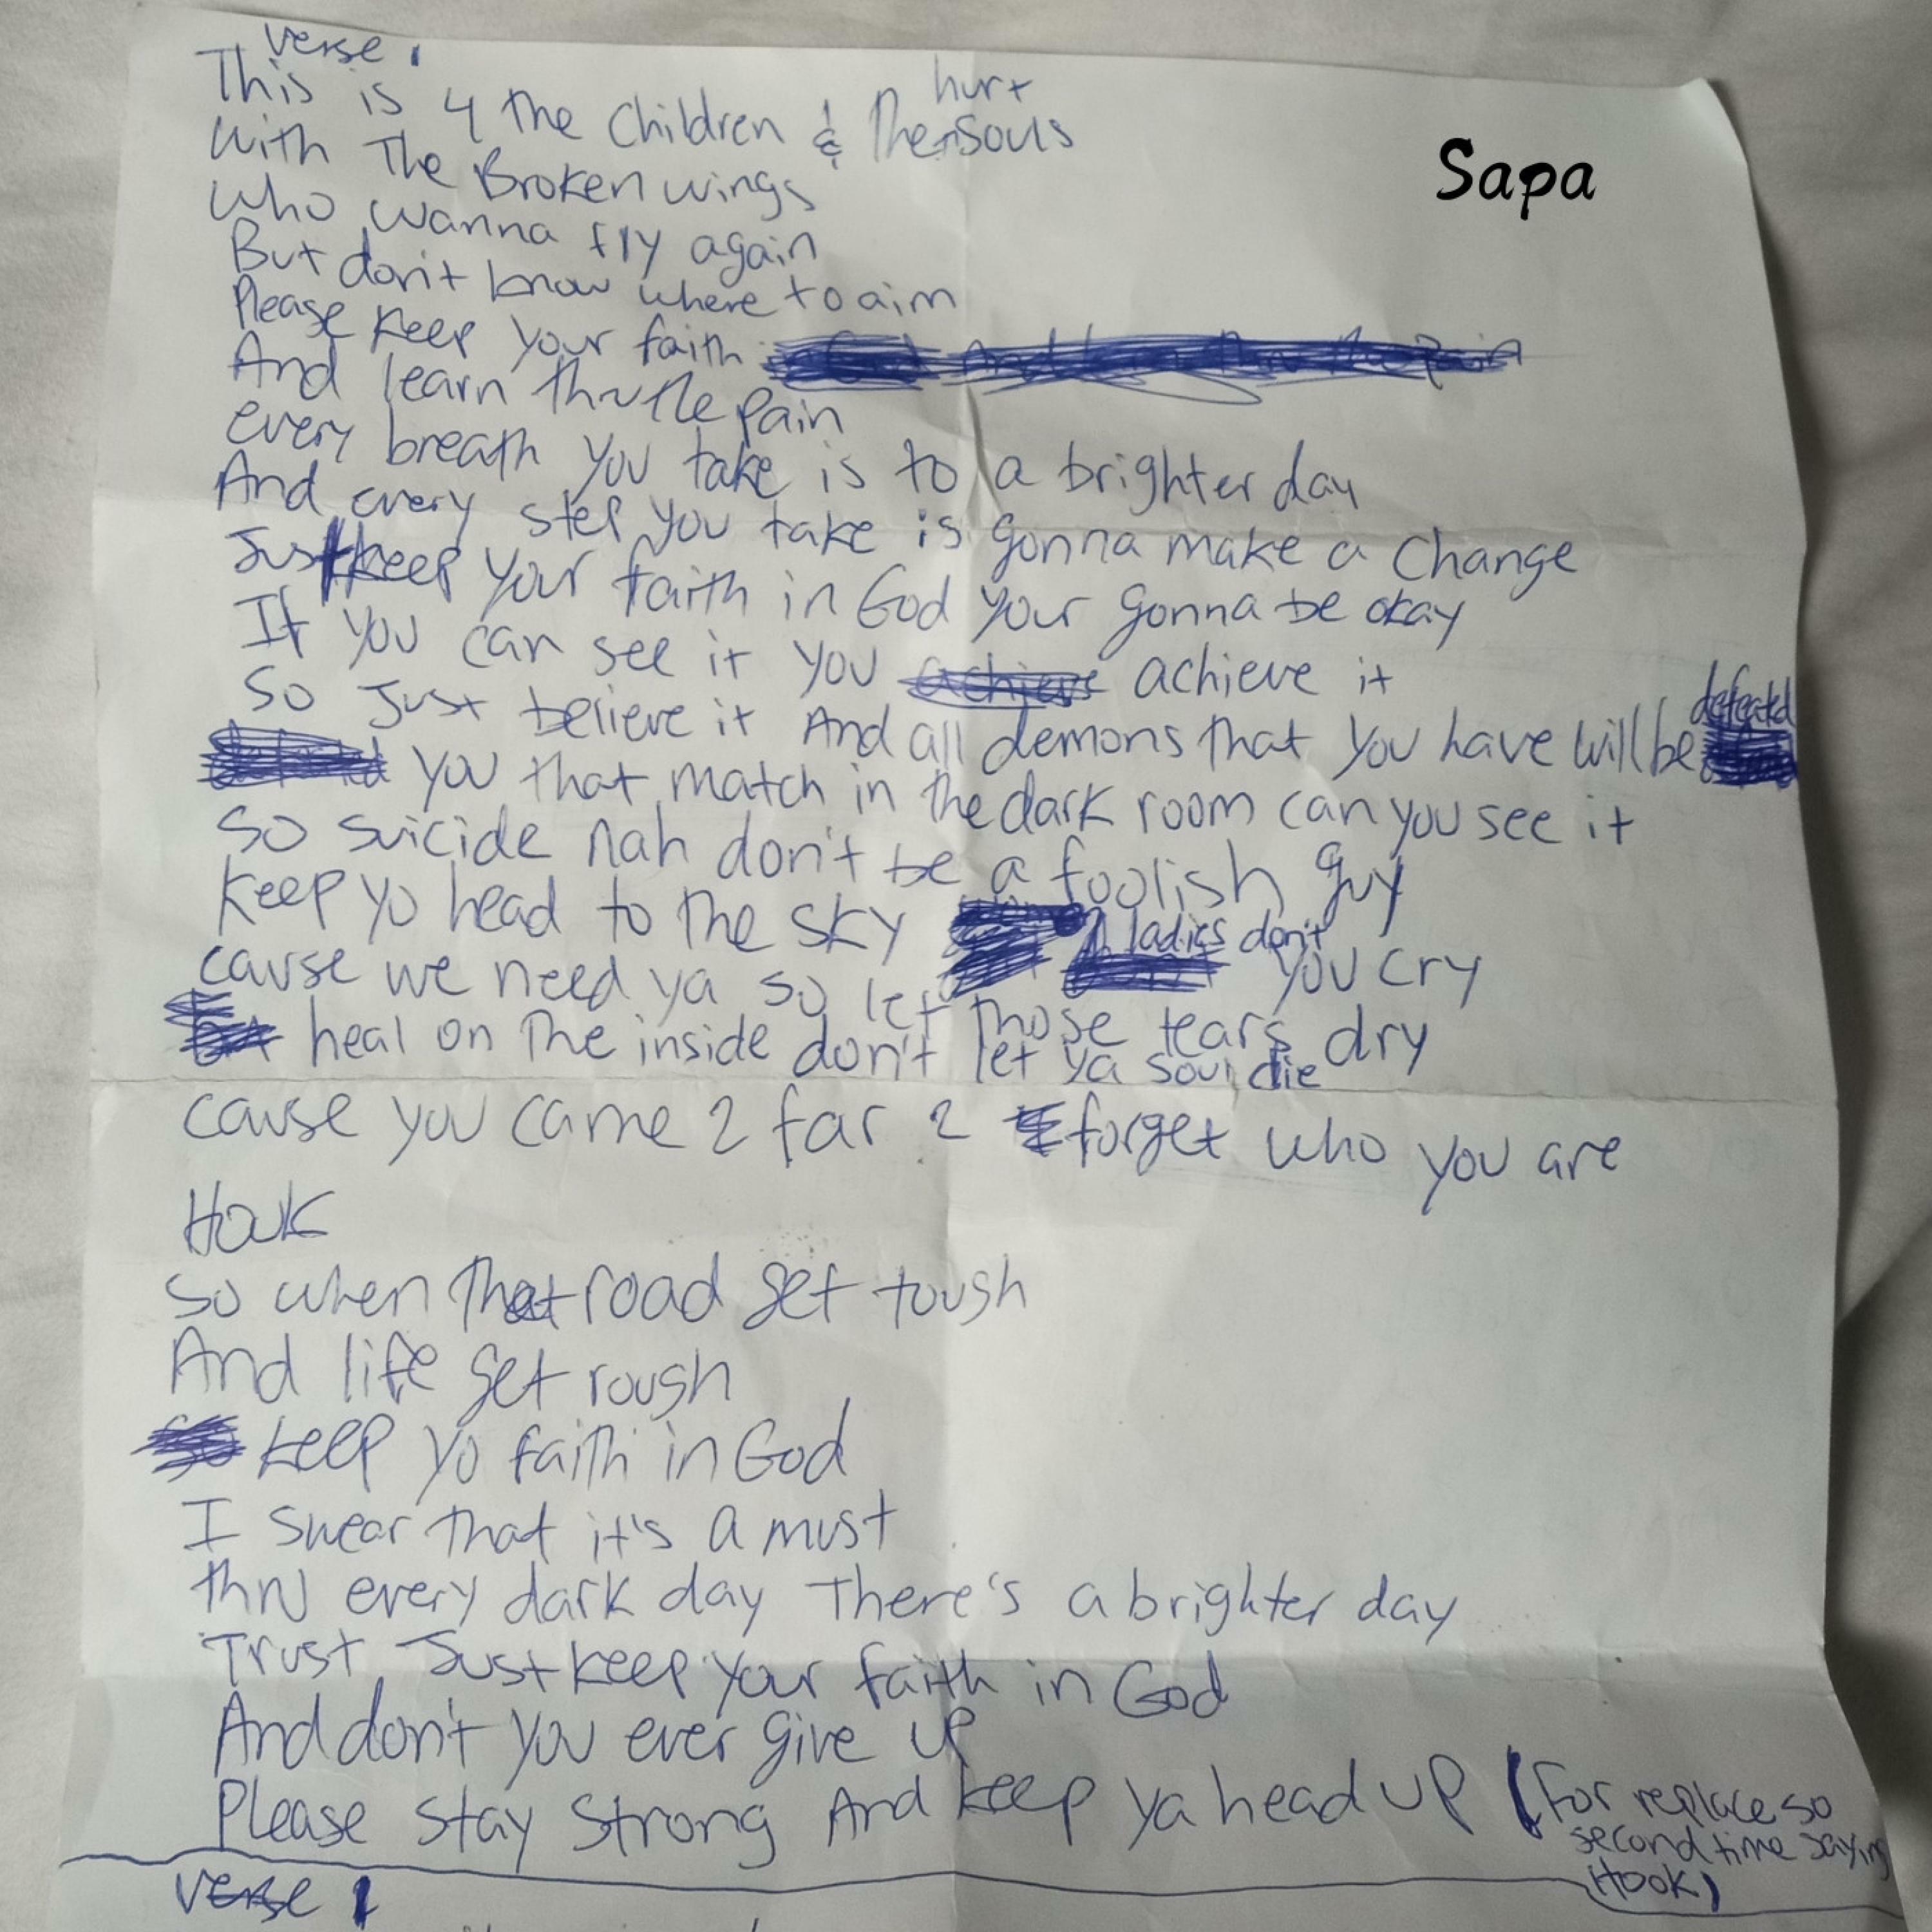 verse 1
This is 4 the Children & Them hurt Souls
with The Broken wings
who wanna fly again
But don't know where to aim
Please keep your faith
And learn thru the pain
every breath you take is to a brighter day
And every step you take is gonna make a change
Just keep your faith in God your gonna be okay
If you can see it you achieve it
So Just believe it And all demons that you have will be defeated
you that match in the dark room can you see it
So suicide nah don't be a foolish guy
keep yo head to the sky ladies don't you cry
cause we need ya so let those tears dry
heal on the inside don't let ya soul die
cause you came 2 far 2 forget who you are
Houk
So when that road get tough
And life get rough
keep yo faith in God
I swear that it's a must
thru every dark day There's a brighter day
Trust Just keep your faith in God
And don't you ever give up
Please stay strong And keep ya head up (For replace so
second time saying
Hook)
verse 1
Sapa